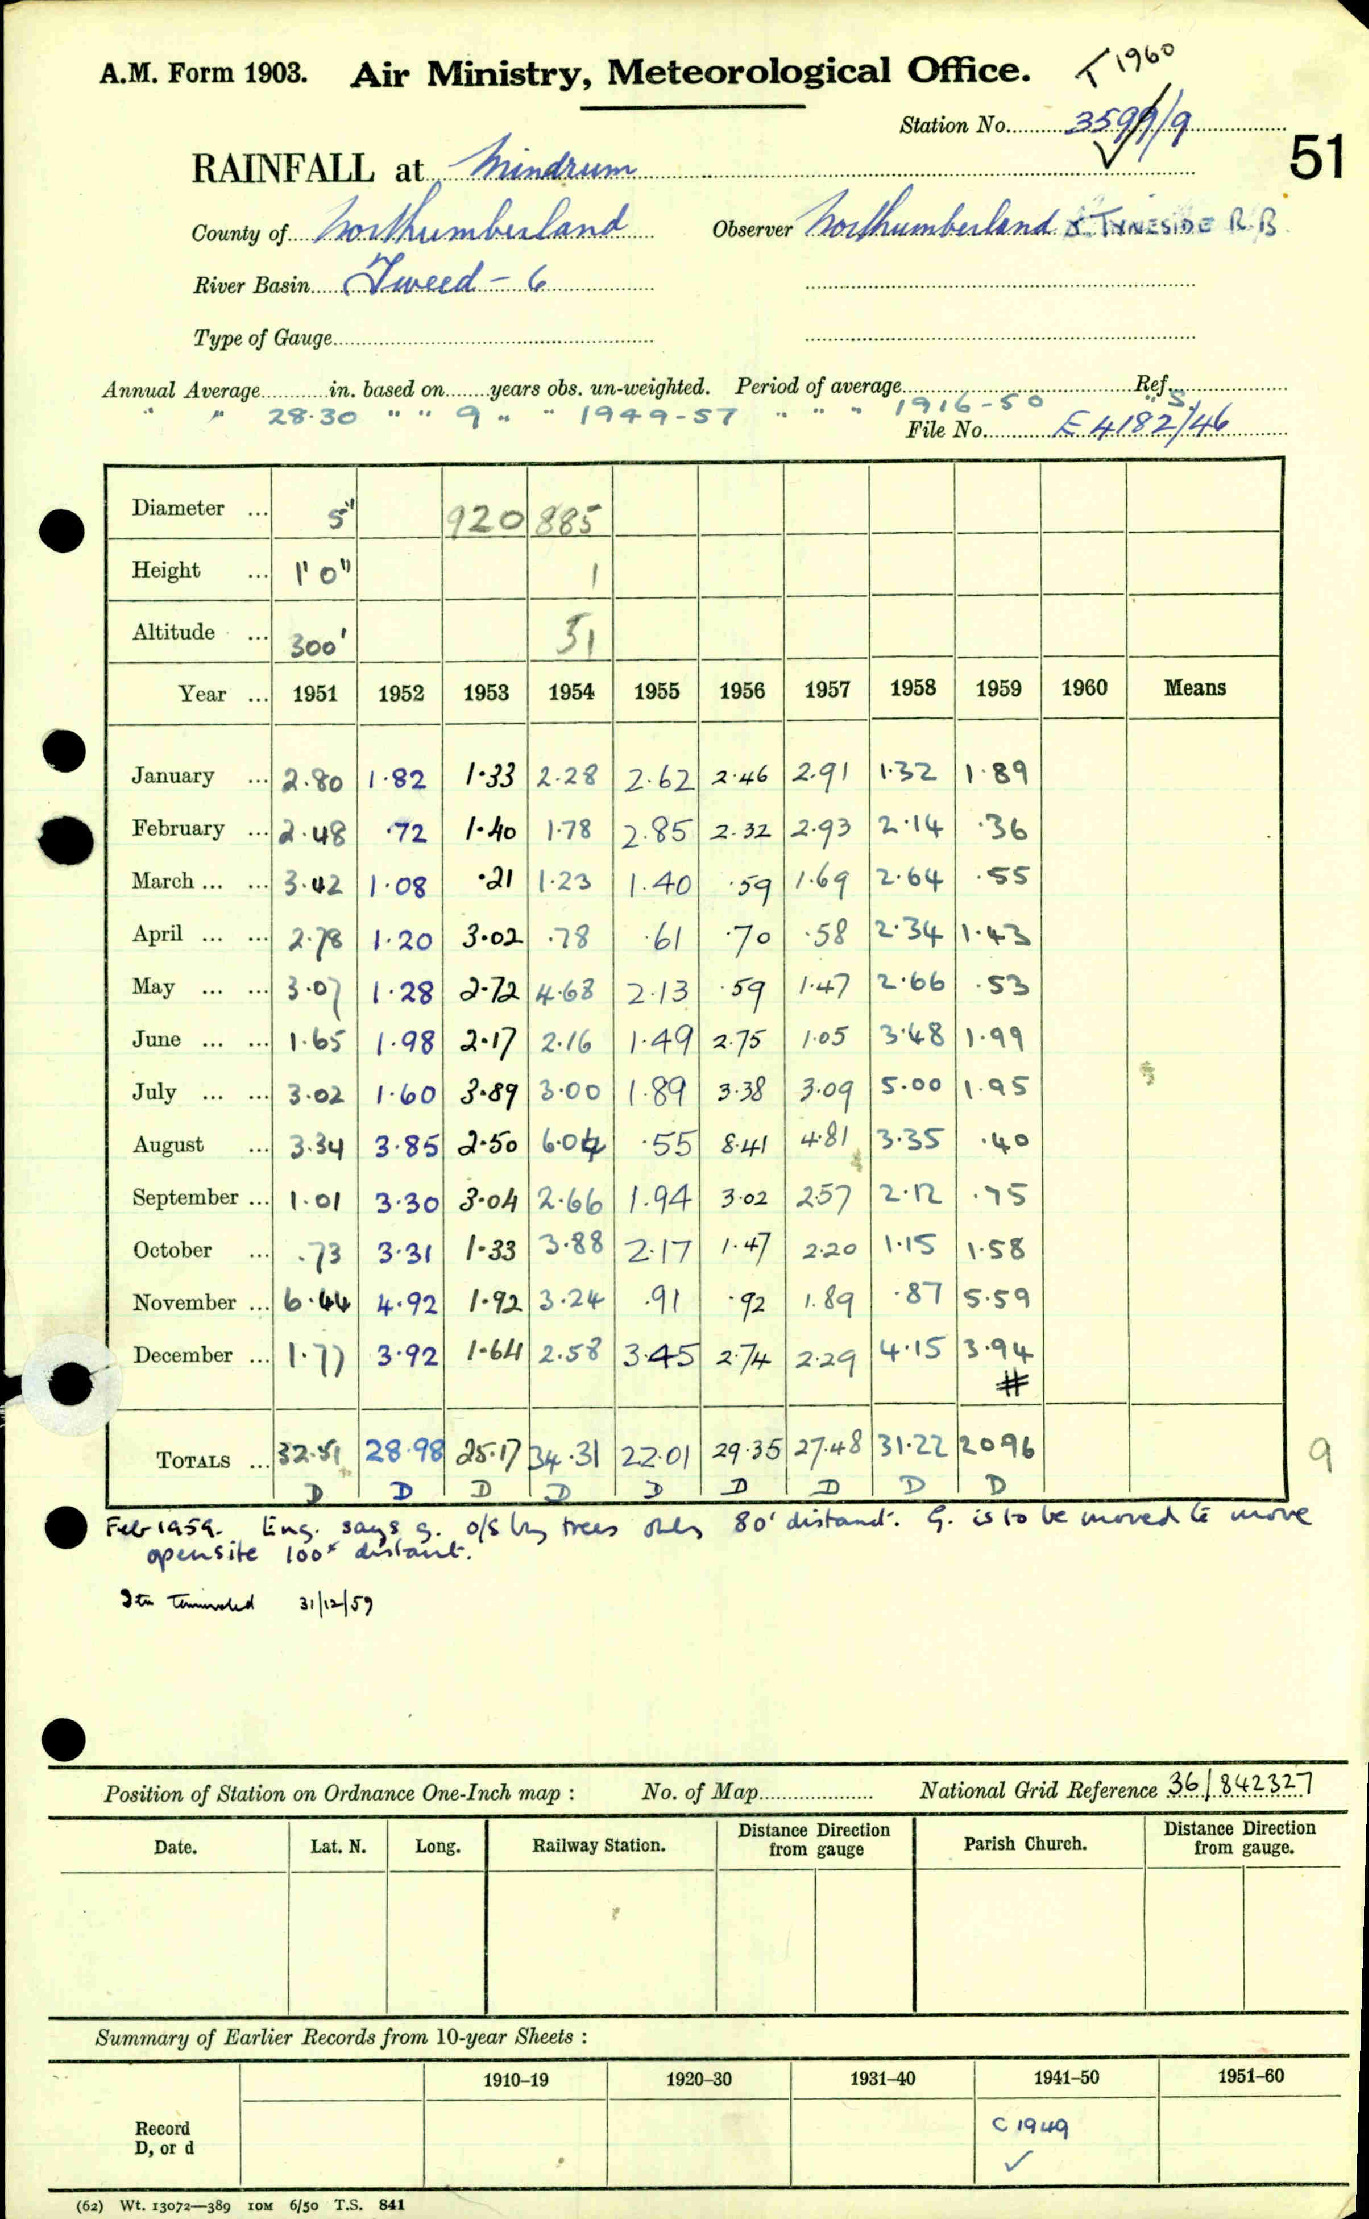 T 1960
A.M. Form 1903. Air Ministry, Meteorological Office.
Station No. 3599/9
51
RAINFALL at Mindrum
County of Northumberland Observer Northumberland & TYNESIDE R B
River Basin Tweed - 6
Type of Gauge
Annual Average in. based on years obs. un-weighted. Period of average Ref.
" " 28.30 " " 9 " " 1949-57 " " " 1916-50 " S.
File No. E 4182/46
Diameter ... 5" 920 885
Height ... 1' 0" 1
Altitude ... 300' 51
Year ... 1951 1952 1953 1954 1955 1956 1957 1958 1959 1960 Means
January ... 2.80 1.82 1.33 2.28 2.62 2.46 2.91 1.32 1.89
February ... 2.48 .72 1.40 1.78 2.85 2.32 2.93 2.14 .36
March ... ... 3.42 1.08 .21 1.23 1.40 .59 1.69 2.64 .55
April ... ... 2.78 1.20 3.02 .78 .61 .70 .58 2.34 1.43
May ... ... 3.07 1.28 2.72 4.68 2.13 .59 1.47 2.66 .53
June ... ... 1.65 1.98 2.17 2.16 1.49 2.75 1.05 3.48 1.99
July ... ... 3.02 1.60 3.89 3.00 1.89 3.38 3.09 5.00 1.95
August ... 3.34 3.85 2.50 6.04 .55 8.41 4.81 3.35 .40
September ... 1.01 3.30 3.04 2.66 1.94 3.02 2.57 2.12 .75
October ... .73 3.31 1.33 3.88 2.17 1.47 2.20 1.15 1.58
November ... 6.44 4.92 1.92 3.24 .91 .92 1.89 .87 5.59
December ... 1.77 3.92 1.64 2.58 3.45 2.74 2.29 4.15 3.94
#
TOTALS ... 32.51 28.98 25.17 34.31 22.01 29.35 27.48 31.22 20 96 9
D D D D D D D D D
Feb 1959. Eng. says g. o/s by trees only 80' distant. G. is to be moved to more
open site 100x distant.
Stn Terminated 31/12/59
Position of Station on Ordnance One-Inch map : No. of Map National Grid Reference 36/842327
Date. Lat. N. Long. Railway Station. Distance Direction from gauge Parish Church. Distance Direction from gauge.
Summary of Earlier Records from 10-year Sheets :
1910-19 1920-30 1931-40 1941-50 1951-60
Record
D, or d
C 1949
✓
(62) Wt. 13072—389 10M 6/50 T.S. 841